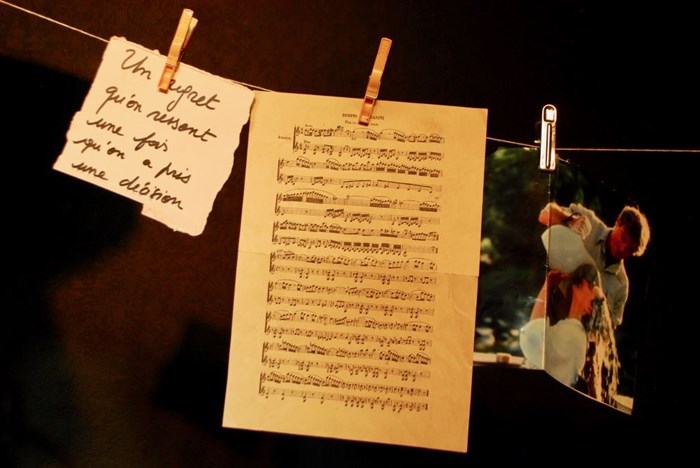 Un regret
qu'on ressent
une fois
qu'on a pris
une décision